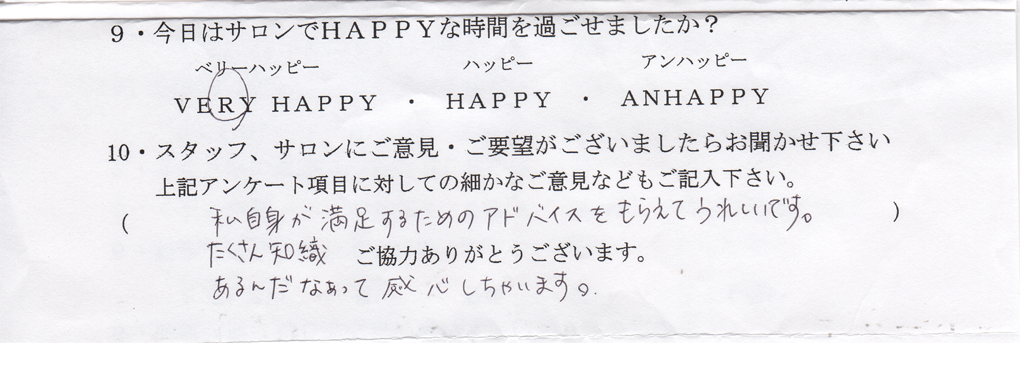 9・今日はサロンでＨＡＰＰＹな時間を過ごせましたか？
ベリーハッピー　ハッピー　アンハッピー
ＶＥＲＹ ＨＡＰＰＹ ・ ＨＡＰＰＹ ・ ＡＮＨＡＰＰＹ
10・スタッフ、サロンにご意見・ご要望がございましたらお聞かせ下さい
上記アンケート項目に対しての細かなご意見などもご記入下さい。
（ 私自身が満足するためのアドバイスをもらえてうれしいです。 ）
たくさん知識 ご協力ありがとうございます。
あるんだなあって感心しちゃいます。